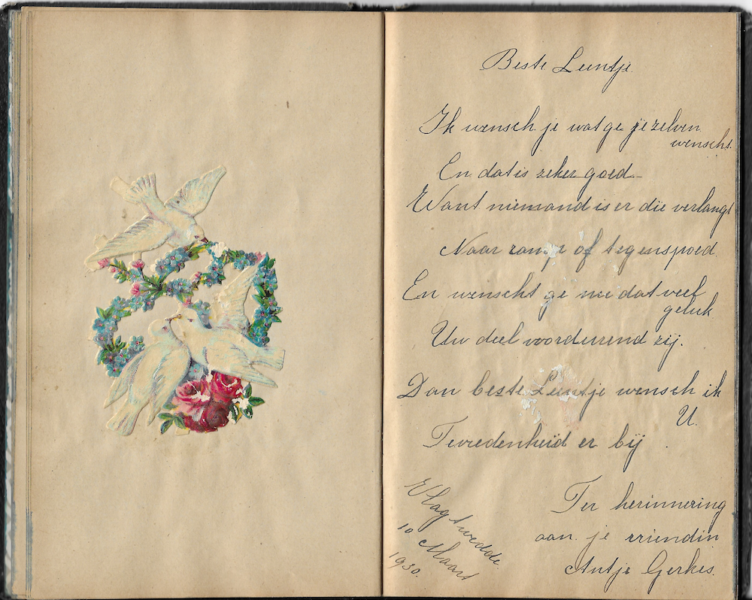 Beste Leentje
Ik wensch je wat ge je zelven
wenscht.
En dat is zeker goed
Want niemand is er die verlangt
Naar ramp of tegenspoed
En wenscht ge nu dat veel
geluk
Uw deel voordurend zij.
Dan beste Leentje wensch ik
U.
Tevredenheid er bij
Ter herinnering
aan je vriendin
Antje Gerkes.
Vlagtwedde
10 Maart
1930.